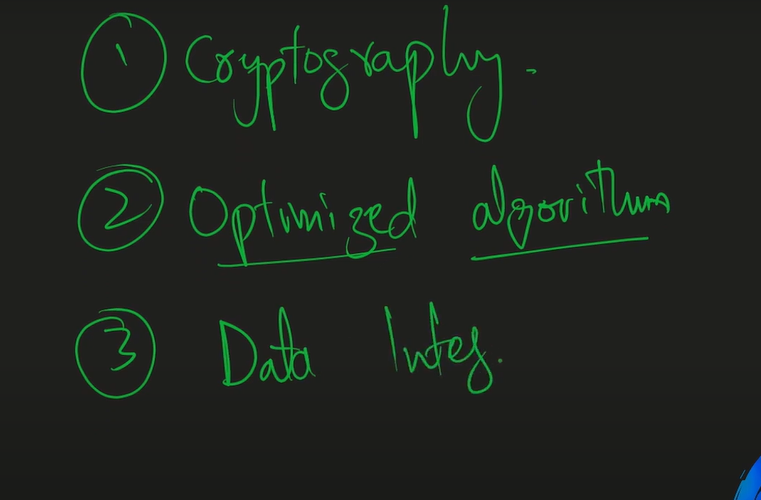 ① Cryptography.
② Optimized algorithms
③ Data Integ.